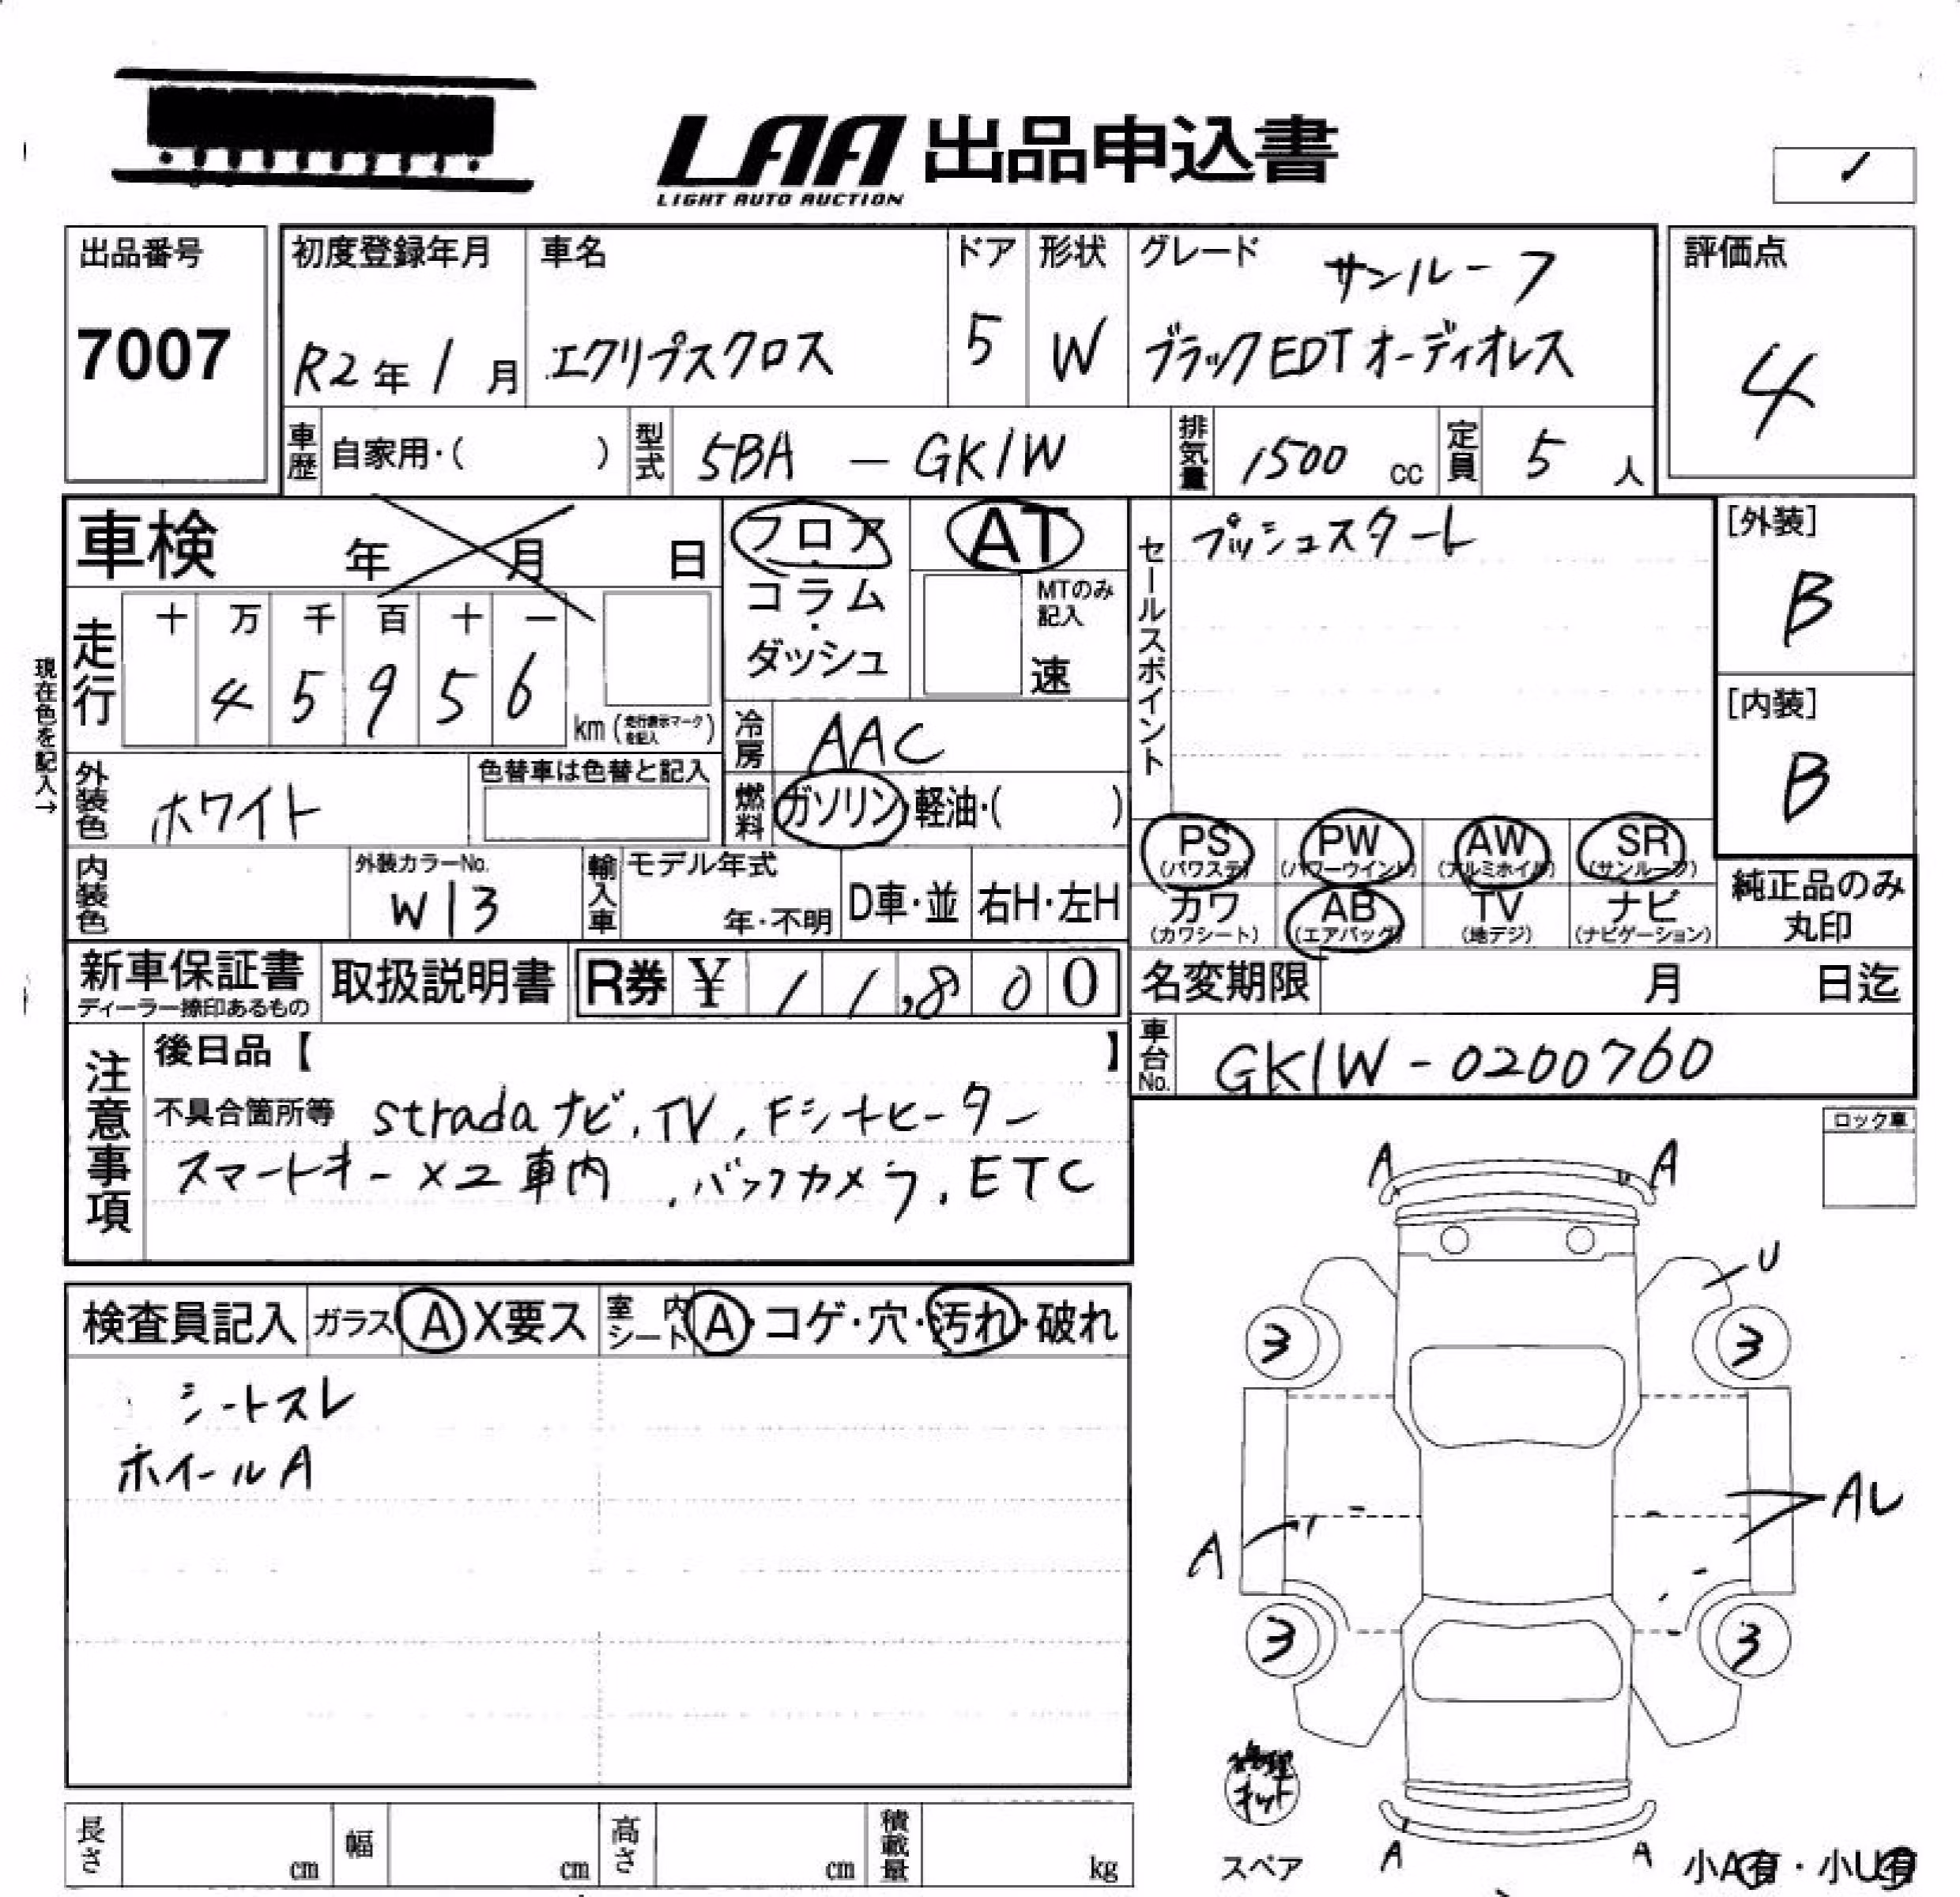 LAA 出品申込書
LIGHT AUTO AUCTION
出品番号
7007
初度登録年月
R2年1月
車名
エクリプスクロス
ドア
5
形状
W
グレード
サンルーフ
ブラックEDTオーディオレス
評価点
4
車歴
自家用・( )
型式
5BA - GK1W
排気量
1500 cc
定員
5 人
車検 年 月 日
走行
十 万 千 百 十 一
4 5 9 5 6
km(走行表示マークを記入)
現在色を記入→
フロア
・
コラム
・
ダッシュ
AT
MTのみ記入
速
冷房
AAC
燃料
ガソリン・軽油・( )
セールスポイント
プッシュスタート
[外装]
B
[内装]
B
外装色
ホワイト
色替車は色替と記入
内装色
外装カラーNo.
W13
輸入車
モデル年式
年・不明
D車・並
右H・左H
PS (パワステ)
PW (パワーウインド)
AW (アルミホイル)
SR (サンルーフ)
カワ (カワシート)
AB (エアバッグ)
TV (地デジ)
ナビ (ナビゲーション)
純正品のみ
丸印
新車保証書
ディーラー捺印あるもの
取扱説明書
R券 ¥ 11,800
名変期限 月 日迄
車台No.
GK1W-0200760
注意事項
後日品【 】
不具合箇所等 stradaナビ, TV, Fシートヒーター
スマートキー×2車内, バックカメラ, ETC
ロック車
検査員記入
ガラス A X要ス
室内シート A・コゲ・穴・汚れ・破れ
シートスレ
ホイールA
A A
U
3 3
A
AL
3 3
修理
キット
スペア
A A
小A有・小U有
長さ cm
幅 cm
高さ cm
積載量 kg